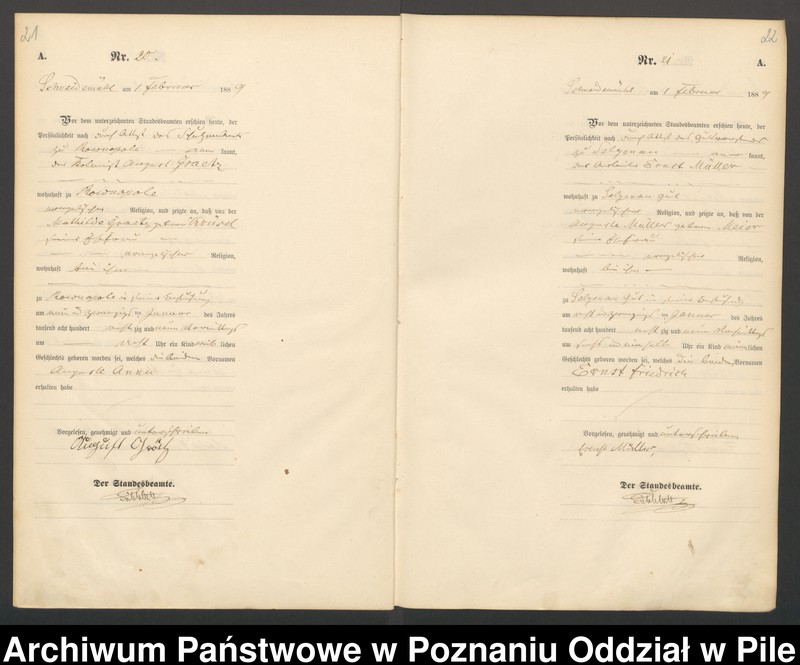 21
A.
Nr. 20
Schneidemühl am 1 Februar 1889
Vor dem unterzeichneten Standesbeamten erschien heute, der
Persönlichkeit nach durch Attest des
zu kannt,
der Kolonist August Graetz
wohnhaft zu
evangelischer Religion, und zeigte an, daß von der
Mathilde Graetz geborne
seiner Ehefrau
evangelischer Religion,
wohnhaft bei ihm
zu in seiner Behausung
am neun und zwanzigsten Januar des Jahres
tausend acht hundert achtzig und neun Vormittags
um acht Uhr ein Kind weiblichen
Geschlechts geboren worden sei, welches die beiden Vornamen
Auguste Anna
erhalten habe
Vorgelesen, genehmigt und unterschrieben
August Grätz
Der Standesbeamte.
22
Nr. 21
A.
Schneidemühl am 1 Februar 1889
Vor dem unterzeichneten Standesbeamten erschien heute, der
Persönlichkeit nach durch Attest des Gutsvorstandes
zu Selgenau kannt,
der Arbeiter Ernst Müller
wohnhaft zu Selgenau Gut
evangelischer Religion, und zeigte an, daß von der
Auguste Müller geborne Meier
seiner Ehefrau
evangelischer Religion,
wohnhaft bei ihm
zu Selgenau Gut in seiner Behausung
am acht und zwanzigsten Januar des Jahres
tausend acht hundert achtzig und neun
um Uhr ein Kind männlichen
Geschlechts geboren worden sei, welches die beiden Vornamen
Ernst Friedrich
erhalten habe
Vorgelesen, genehmigt und unterschrieben
Ernst Müller,
Der Standesbeamte.
Archiwum Państwowe w Poznaniu Oddział w Pile